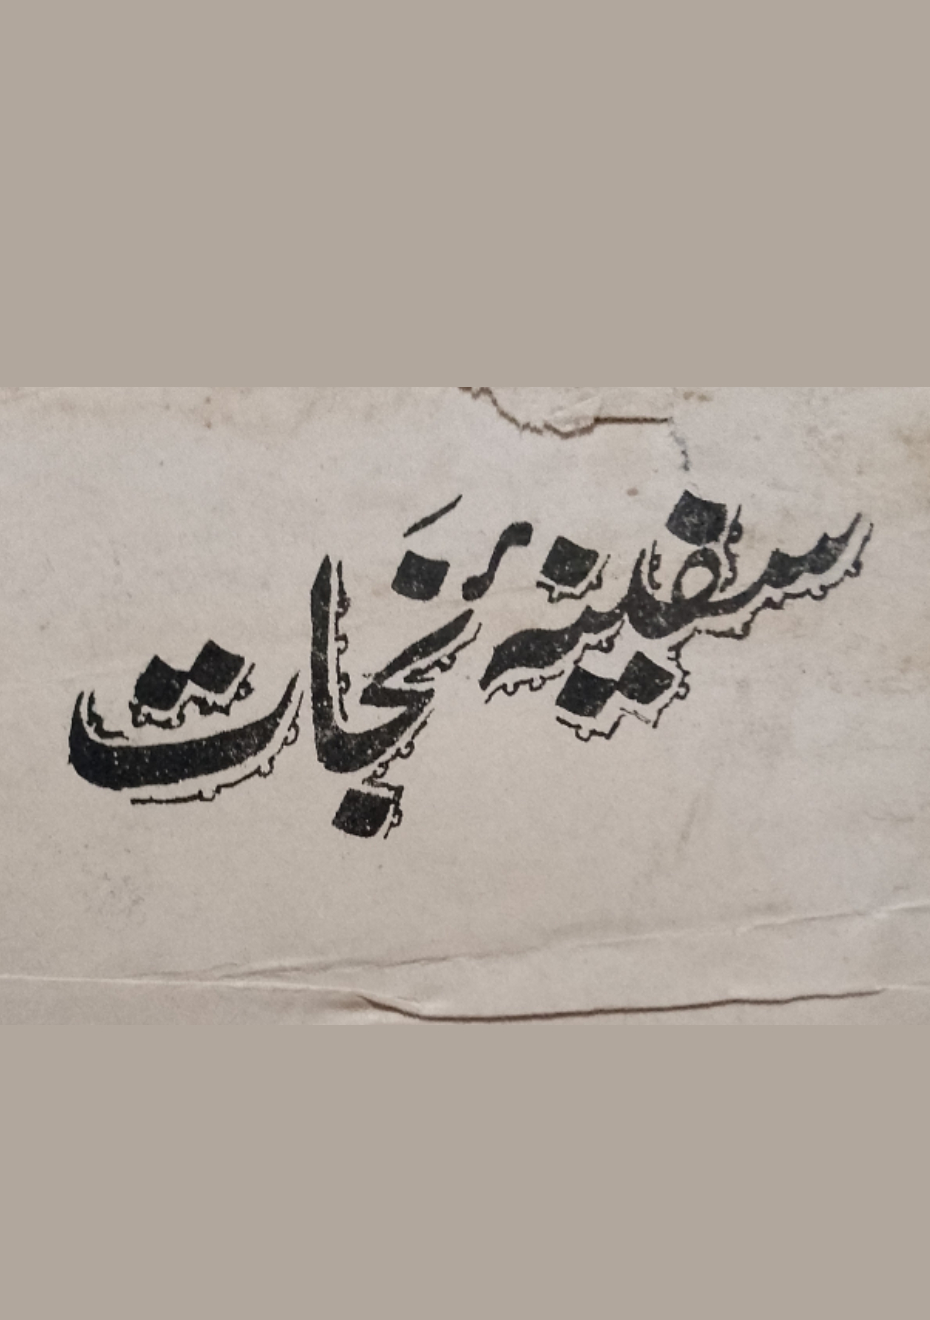 سفینۂ نَجات